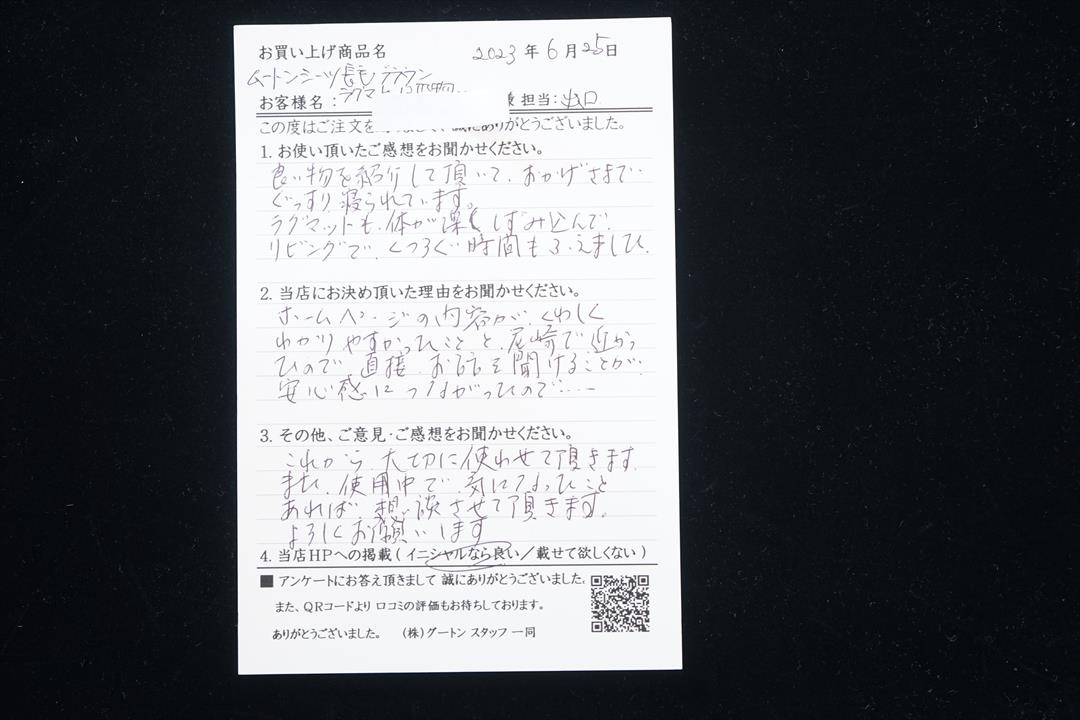 お買い上げ商品名 2023年6月25日
ムートンシーツ長毛 ブラウン
ラグマ
お客様名： 担当：出口
この度はご注文を 誠にありがとうございました。
1. お使い頂いたご感想をお聞かせください。
良い物を紹介して頂いて、おかげさまで
ぐっすり寝られています。
ラグマットも、体が深くしずみ込んで、
リビングで、くつろぐ時間もふえました。
2. 当店にお決め頂いた理由をお聞かせください。
ホームページの内容が、くわしく
わかりやすかったことと、尼崎で近かっ
たので、直接、お話を聞けることが、
安心感につながったので……
3. その他、ご意見・ご感想をお聞かせください。
これから、大切に使わせて頂きます。
また、使用中で、気になったこと
あれば、想談させて頂きます。
よろしくお願いします
4. 当店HPへの掲載（イニシャルなら良い／載せて欲しくない）
■ アンケートにお答え頂きまして 誠にありがとうございました。
また、QRコードより 口コミの評価もお待ちしております。
ありがとうございました。 （株）グートン スタッフ 一同